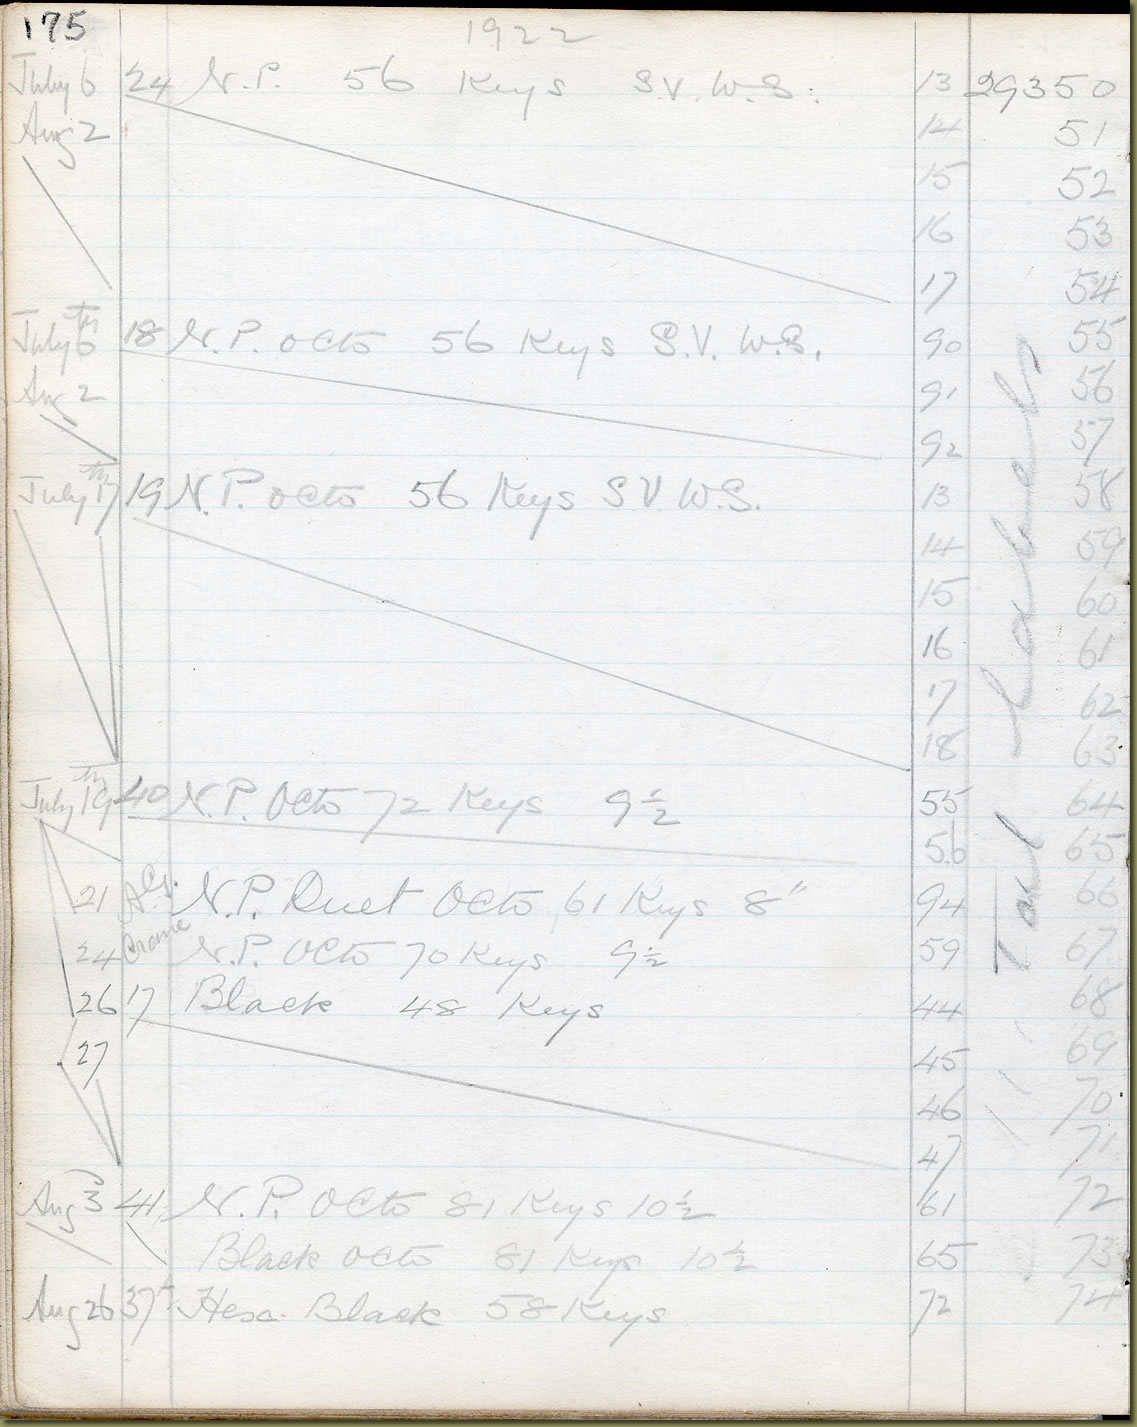 175
1922
July 6 24 N.P. 56 Keys S.V. W.S. 13 29350
Aug 2 14 51
15 52
16 53
17 54
July 6th 18 N.P. Octo 56 Keys S.V. W.S. 90 55
Aug 2 91 56
92 57
July 17th 19 N.P. Octo 56 Keys S V W.S. 13 58
14 59
15 60
16 61
17 62
18 63
July 19th 40 N.P. Octo 72 Keys 9½ 55 64
56 65
21 N.P. Duet Octo 61 Keys 8" 94 66
24 Crane N.P. Octo 70 Keys 9½ 59 67
26 17 Black 48 Keys 44 68
27 45 69
46 70
47 71
Aug 3 41 N.P. Octo 81 Keys 10½ 61 72
Black Octo 81 Keys 10½ 65 73
Aug 26 37 Hexa. Black 58 Keys 72 74
Labels